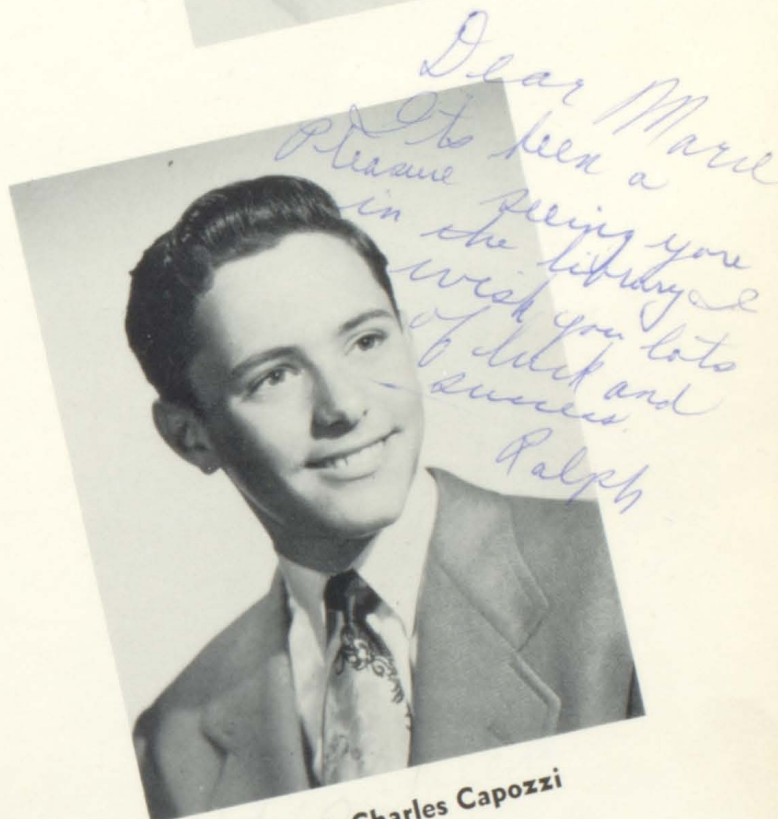 Dear Marie
Its been a
Pleasure seeing you
in the library I
wish you lots
of luck and
success.
Ralph
Charles Capozzi